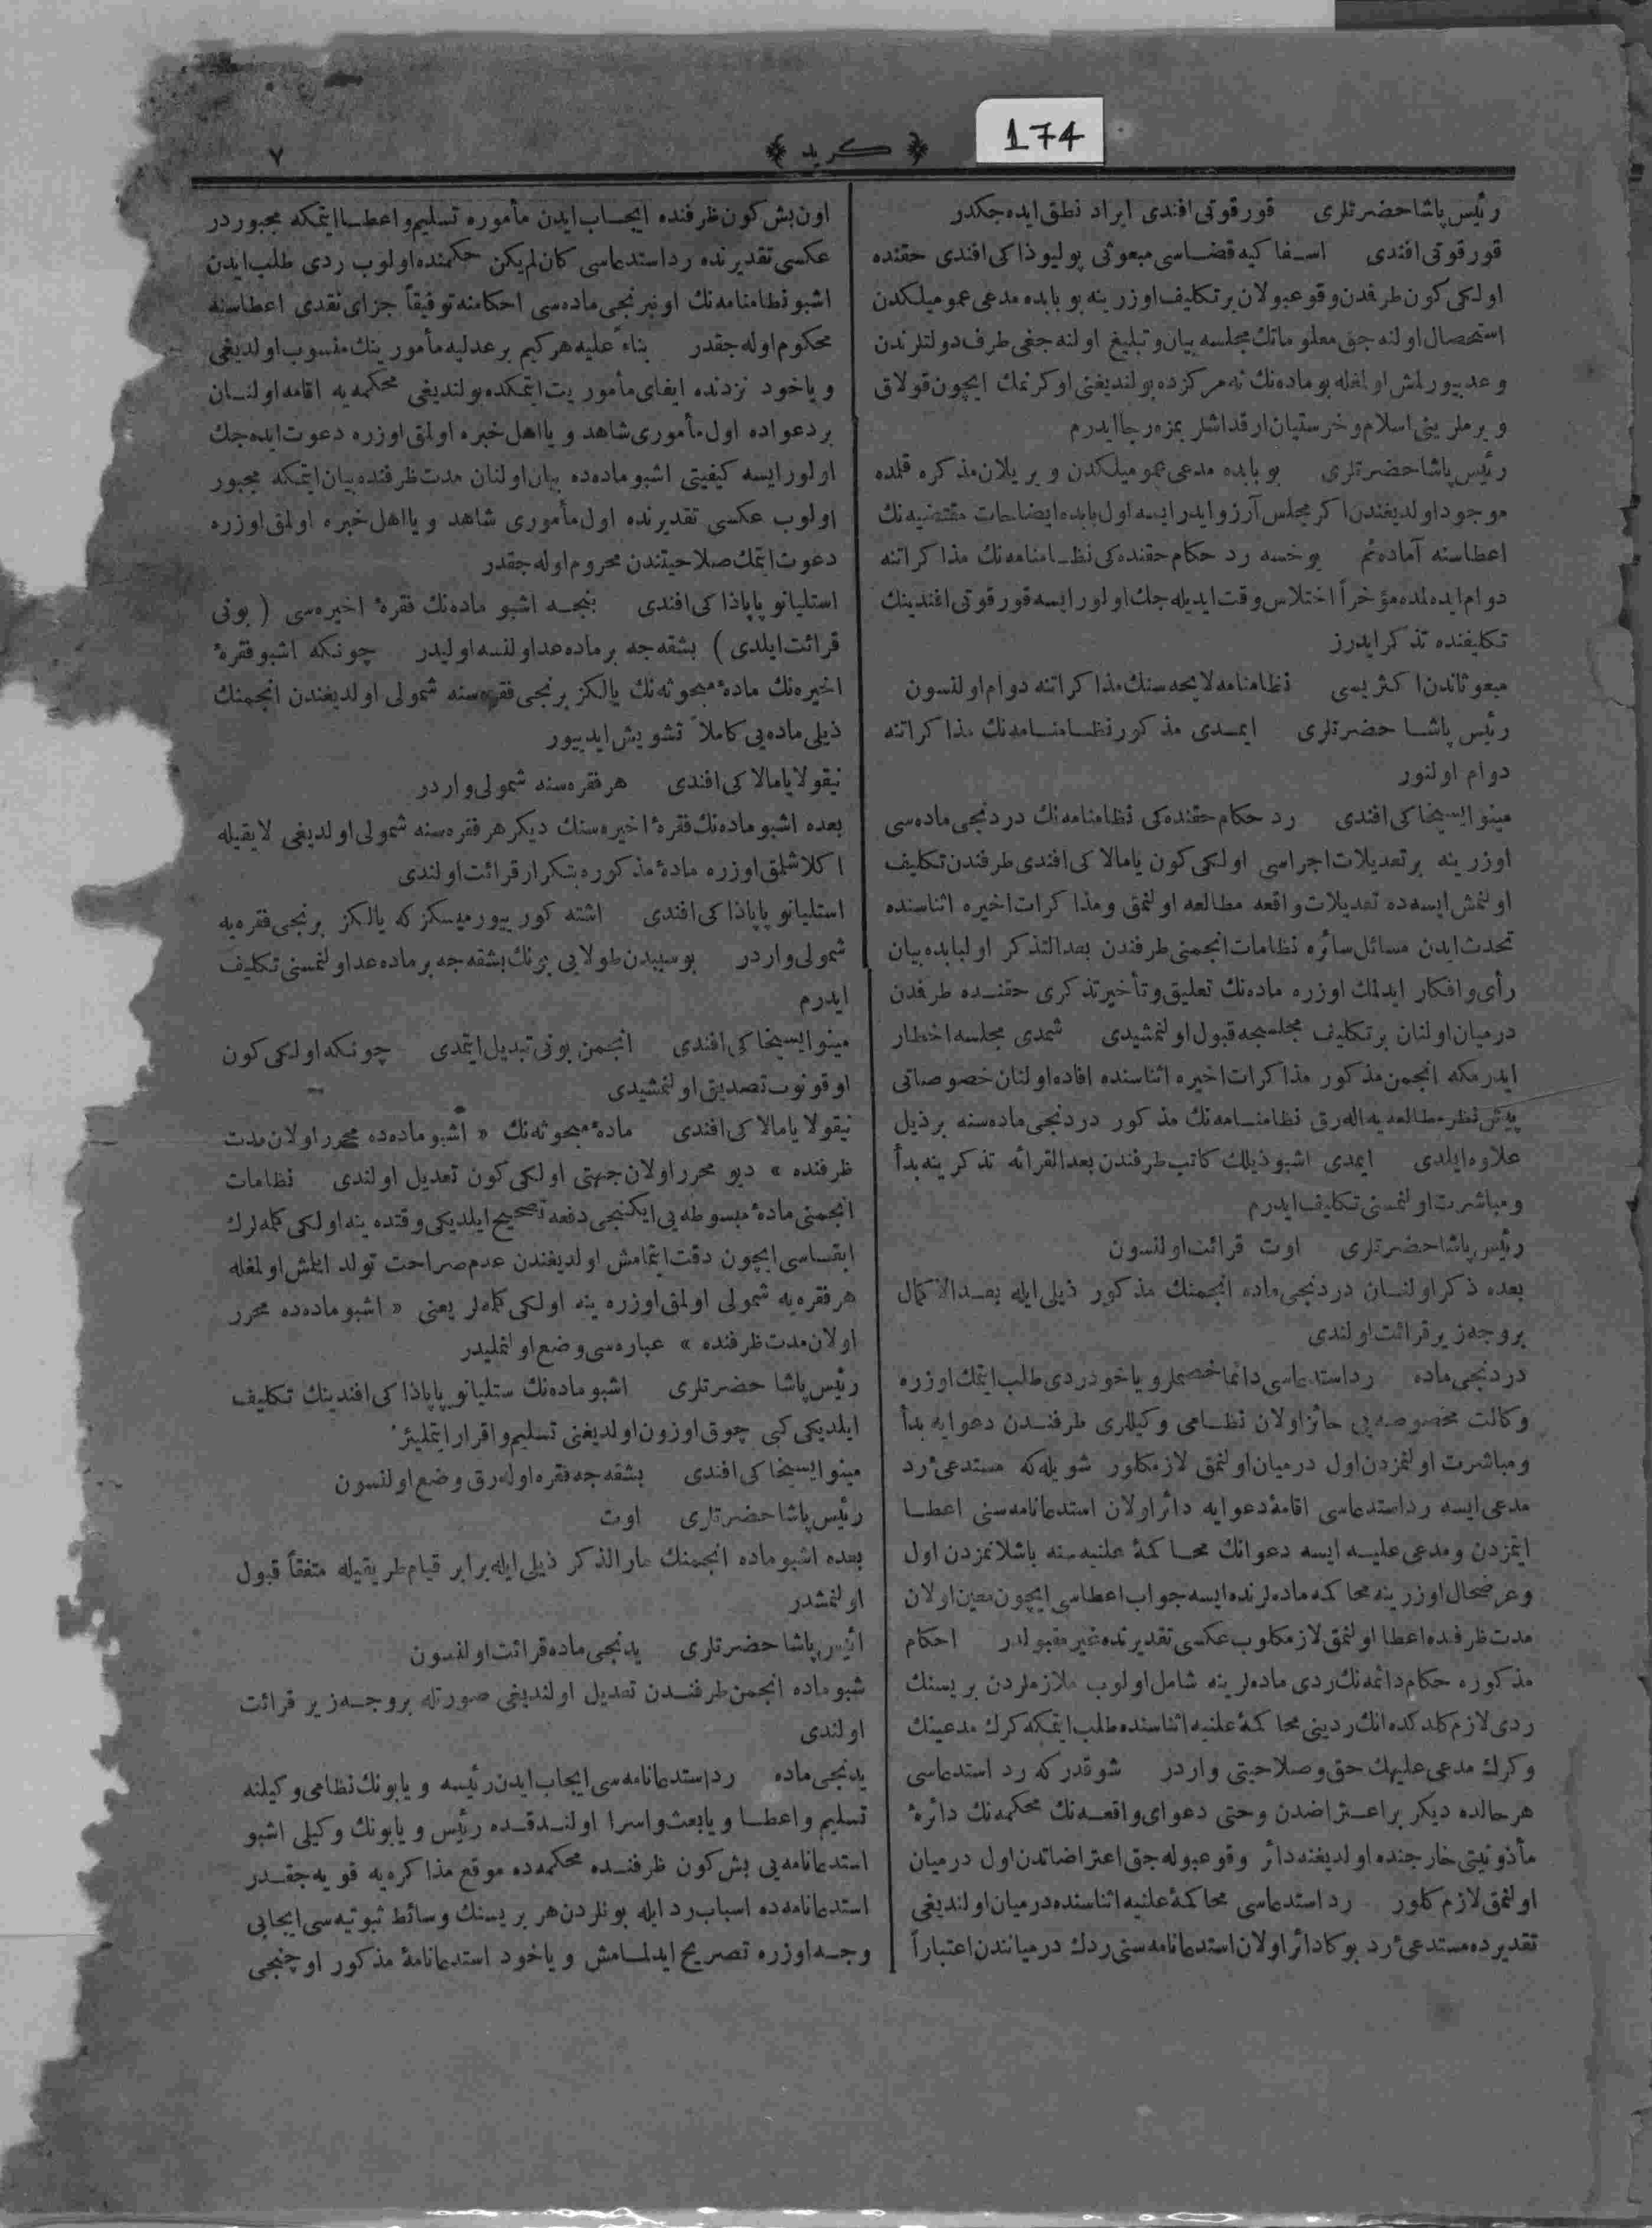 174
﴿ كريد ﴾
٧
رئيس پاشا حضرتلری قورقوتی افندی ايراد نطق ايده‌جكدر
قورقوتی افندی اسفاكيه قضاسی مبعوثی پوليوذاكی افندی حقنده
اولكی كون طرفدن وقوعبولان بر تكليف اوزرينه بو بابده مدعی عموميلكدن
استحصال اولنه‌جق معلوماتك مجلسه بيان و تبليغ اولنه‌جغی طرف دولتلرندن
وعد بيورلمش اولمغله بو ماده‌نك نه مركزده بولنديغنی اوكرنمك ايچون قولاق
ويرملرينی اسلام و خرستيان ارقداشلريمزه رجا ايدرم
رئيس پاشا حضرتلری بو بابده مدعی عموميلكدن ويريلان مذكره قلمده
موجود اولديغندن اكر مجلس آرزو ايدر ايسه اول بابده ايضاحات مقتضيه‌نك
اعطاسنه آماده‌ثم بوخسه رد حكام حقنده‌كی نظامنامه‌نك مذاكراتنه
دوام ايده‌لمده مؤخراً اختلاس وقت ايديله‌جك اولور ايسه قورقوتی افندينك
تكليفنده تذكر ايدرز
مبعوثاندن اكثريسی نظامنامه لايحه‌سنك مذاكراتنه دوام اولنسون
رئيس پاشا حضرتلری ايمدی مذكور نظامنامه‌نك مذاكراتنه
دوام اولنور
مينو ايسيخاكی افندی رد حكام حقنده‌كی نظامنامه‌نك دردنجی ماده‌سی
اوزرينه بر تعديلات اجراسی اولكی كون يامالاكی افندی طرفندن تكليف
اولنمش ايسه‌ده تعديلات واقعه مطالعه اولنمق و مذاكرات اخيره اثناسنده
تحدث ايدن مسائل سائره نظامات انجمنی طرفندن بعد التذكر اولبابده بيان
رأی و افكار ايدلمك اوزره ماده‌نك تعليق و تأخير تذكری حقنده طرفدن
درميان اولنان بر تكليف مجلسجه قبول اولنمشيدی شمدی مجلسه اخطار
ايدرمكه انجمن مذكور مذاكرات اخيره اثناسنده افاده اولنان خصوصاتی
پيش نظر مطالعه‌يه اله‌رق نظامنامه‌نك مذكور دردنجی ماده‌سنه بر ذيل
علاوه ايلدی ايمدی اشبو ذيلك كاتب طرفندن بعد القرائه تذكرينه بدأ
و مباشرت اولنمسنی تكليف ايدرم
رئيس پاشا حضرتلری اوت قرائت اولنسون
بعده ذكر اولنان دردنجی ماده انجمنك مذكور ذيلی ايله بعد الاكمال
بروجه زير قرائت اولندی
دردنجی ماده رد استدعاسی دائما خصملر و ياخود ردی طلب ايتمك اوزره
وكالت مخصوصه‌يی حائز اولان نظامی وكيللری طرفندن دعوايه بدأ
و مباشرت اولنمزدن اول درميان اولنمق لازمكلور شويله‌كه مستدعیٔ رد
مدعی ايسه رد استدعاسی اقامهٔ دعوايه دائر اولان استدعانامه‌سنی اعطا
ايتمزدن و مدعی عليه ايسه دعوانك محاكمهٔ علنيه‌سنه باشلانمزدن اول
و عرضحال اوزرينه محاكمه ماده‌لرنده ايسه جواب اعطاسی ايچون معين اولان
مدت ظرفنده اعطا اولنمق لازمكلوب عكسی تقديرنده غير مقبولدر احكام
مذكوره حكام دائمه‌نك ردی ماده‌لرينه شامل اولوب ملازملردن بريسنك
ردی لازم كلدكده انك ردينی محاكمهٔ علنيه اثناسنده طلب ايتمكه كرك مدعينك
و كرك مدعی عليهك حق و صلاحيتی واردر شوقدركه رد استدعاسی
هر حالده ديكر بر اعتراضدن و حتی دعوای واقعه‌نك محكمه‌نك دائرهٔ
مأذونيتی خارجنده اولديغنه دائر وقوعبوله‌جق اعتراضاتدن اول درميان
اولنمق لازم كلور رد استدعاسی محاكمهٔ علنيه اثناسنده درميان اولنديغی
تقديرده مستدعیٔ رد بوكا دائر اولان استدعانامه‌سنی ردك درمياندن اعتباراً
اون بش كون ظرفنده ايجاب ايدن مأموره تسليم و اعطا ايتمكه مجبوردر
عكسی تقديرنده رد استدعاسی كان لم يكن حكمنده اولوب ردی طلب ايدن
اشبو نظامنامه‌نك اونبرنجی ماده‌سی احكامنه توفيقاً جزای نقدی اعطاسنه
محكوم اوله‌جقدر بناءً عليه هر كيم بر عدليه مأمورينك منسوب اولديغی
و ياخود نزدنده ايفای مأموريت ايتمكده بولنديغی محكمه‌يه اقامه اولنان
بر دعواده اول مأموری شاهد و يا اهل خبره اولمق اوزره دعوت ايده‌جك
اولور ايسه كيفيتی اشبو ماده‌ده بيان اولنان مدت ظرفنده بيان ايتمكه مجبور
اولوب عكسی تقديرنده اول مأموری شاهد و يا اهل خبره اولمق اوزره
دعوت ايتمك صلاحيتندن محروم اوله‌جقدر
استليانو پاپاذاكی افندی بنجه اشبو ماده‌نك فقرهٔ اخيره‌سی ( بونی
قرائت ايلدی ) بشقه‌جه بر ماده عد اولنسه اوليدر چونكه اشبو فقرهٔ
اخيره‌نك مادهٔ مبحوثه‌نك يالكز برنجی فقره‌سنه شمولی اولديغندن انجمنك
ذيلی ماده‌يی كاملاً تشويش ايدييور
نيقولا يامالاكی افندی هر فقره‌سنه شمولی واردر
بعده اشبو ماده‌نك فقرهٔ اخيره‌سنك ديكر هر فقره‌سنه شمولی اولديغی لايقيله
اكلاشلمق اوزره مادهٔ مذكوره بتكرار قرائت اولندی
استليانو پاپاذاكی افندی اشته كوربيورميسكزكه يالكز برنجی فقره‌يه
شمولی واردر بو سببدن طولايی بونك بشقه‌جه بر ماده عد اولنمسنی تكليف
ايدرم
مينو ايسيخاكی افندی انجمن بونی تبديل ايتمدی چونكه اولكی كون
اوقونوب تصديق اولنمشيدی
نيقولا يامالاكی افندی مادهٔ مبحوثه‌نك « اشبو ماده‌ده محرر اولان مدت
ظرفنده » ديو محرر اولان جهتی اولكی كون تعديل اولندی نظامات
انجمنی مادهٔ مبسوطه‌يی ايكنجی دفعه تصحيح ايلديكی وقتده ينه اولكی كله‌لرك
ابقاسی ايچون دقت ايتمامش اولديغندن عدم صراحت تولد ايتمش اولمغله
هر فقره‌يه شمولی اولمق اوزره ينه اولكی كله‌لر يعنی « اشبو ماده‌ده محرر
اولان مدت ظرفنده » عباره‌سی وضع اولنمليدر
رئيس پاشا حضرتلری اشبو ماده‌نك ستليانو پاپاذاكی افندينك تكليف
ايلديكی كبی چوق اوزون اولديغنی تسليم و اقرار ايتمليز
مينو ايسيخاكی افندی بشقه‌جه فقره اوله‌رق وضع اولنسون
رئيس پاشا حضرتلری اوت
بعده اشبو ماده انجمنك مار الذكر ذيلی ايله برابر قيام طريقيله متفقاً قبول
اولنمشدر
رئيس پاشا حضرتلری يدنجی ماده قرائت اولنسون
شبو ماده انجمن طرفندن تعديل اولنديغی صورتله بروجه زير قرائت
اولندی
يدنجی ماده رد استدعانامه‌سی ايجاب ايدن رئيسه و يا بونك نظامی وكيلنه
تسليم و اعطا و يا بعث و اسرا اولندقده رئيس و يا بونك وكيلی اشبو
استدعانامه‌يی بش كون ظرفنده محكمه‌ده موقع مذاكره‌يه قويه‌جقدر
استدعانامه‌ده اسباب رد ايله بونلردن هر بريسنك وسائط ثبوتيه‌سی ايجابی
وجه اوزره تصريح ايدلمامش و ياخود استدعانامهٔ مذكور اوچنجی